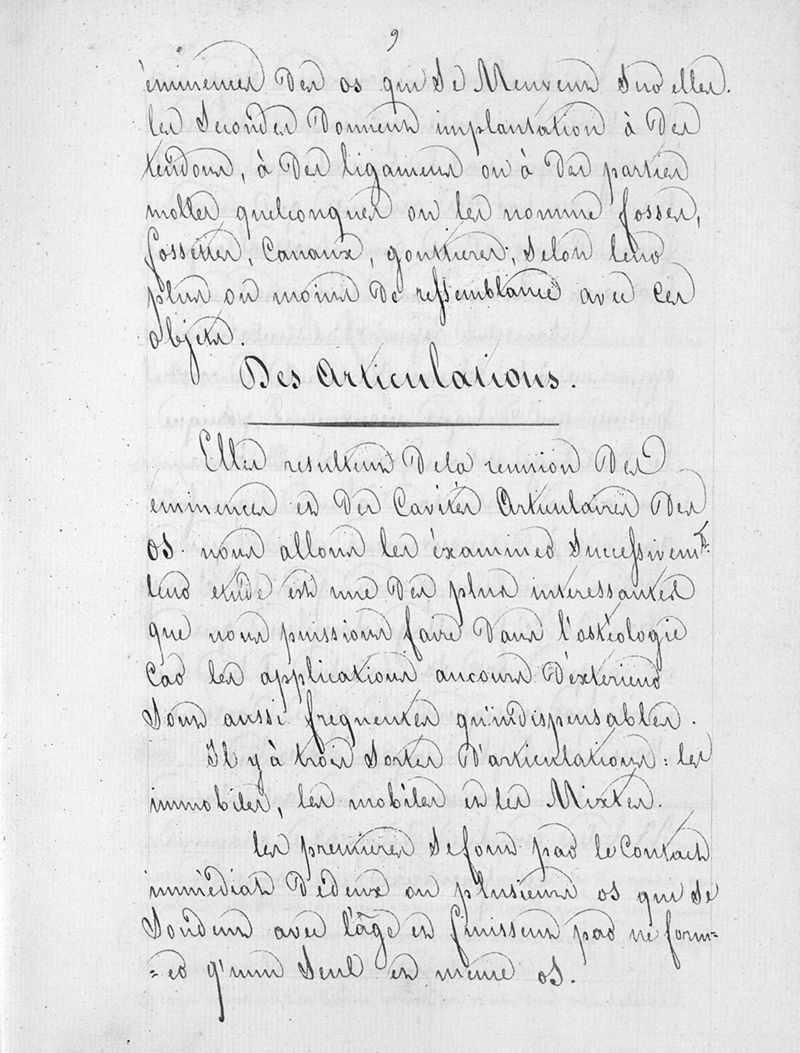 9
éminences des os qui se Meuvent sur elles.
les Secondes Donnent implantation à des
tendons, à des ligaments ou à des parties
molles quelconques on les nomme fosses,
fossettes, Canaux, gouttieres, selon leur
plus ou moins de ressemblance avec ces
objets.
Des Articulations.
Elles resultent dela reunion des
éminences et des Cavités Articulaires des
os. nous allons les éxammer Successivemt.
leur etude est une des plus interessantes
que nous puissions faire dans l'ostéologie
car les applications aucours d'éxterieur
Sont aussi frequentes qu'indispensables.
Il y à trois Sortes d'articulations : les
immobiles, les mobiles et les Mixtes.
les premieres se font par le Contact
immédiat dédeux ou plusieurs os qui se
Soudent avec l'âge et finissent par ne form=
=er q'unn Seul et même os.